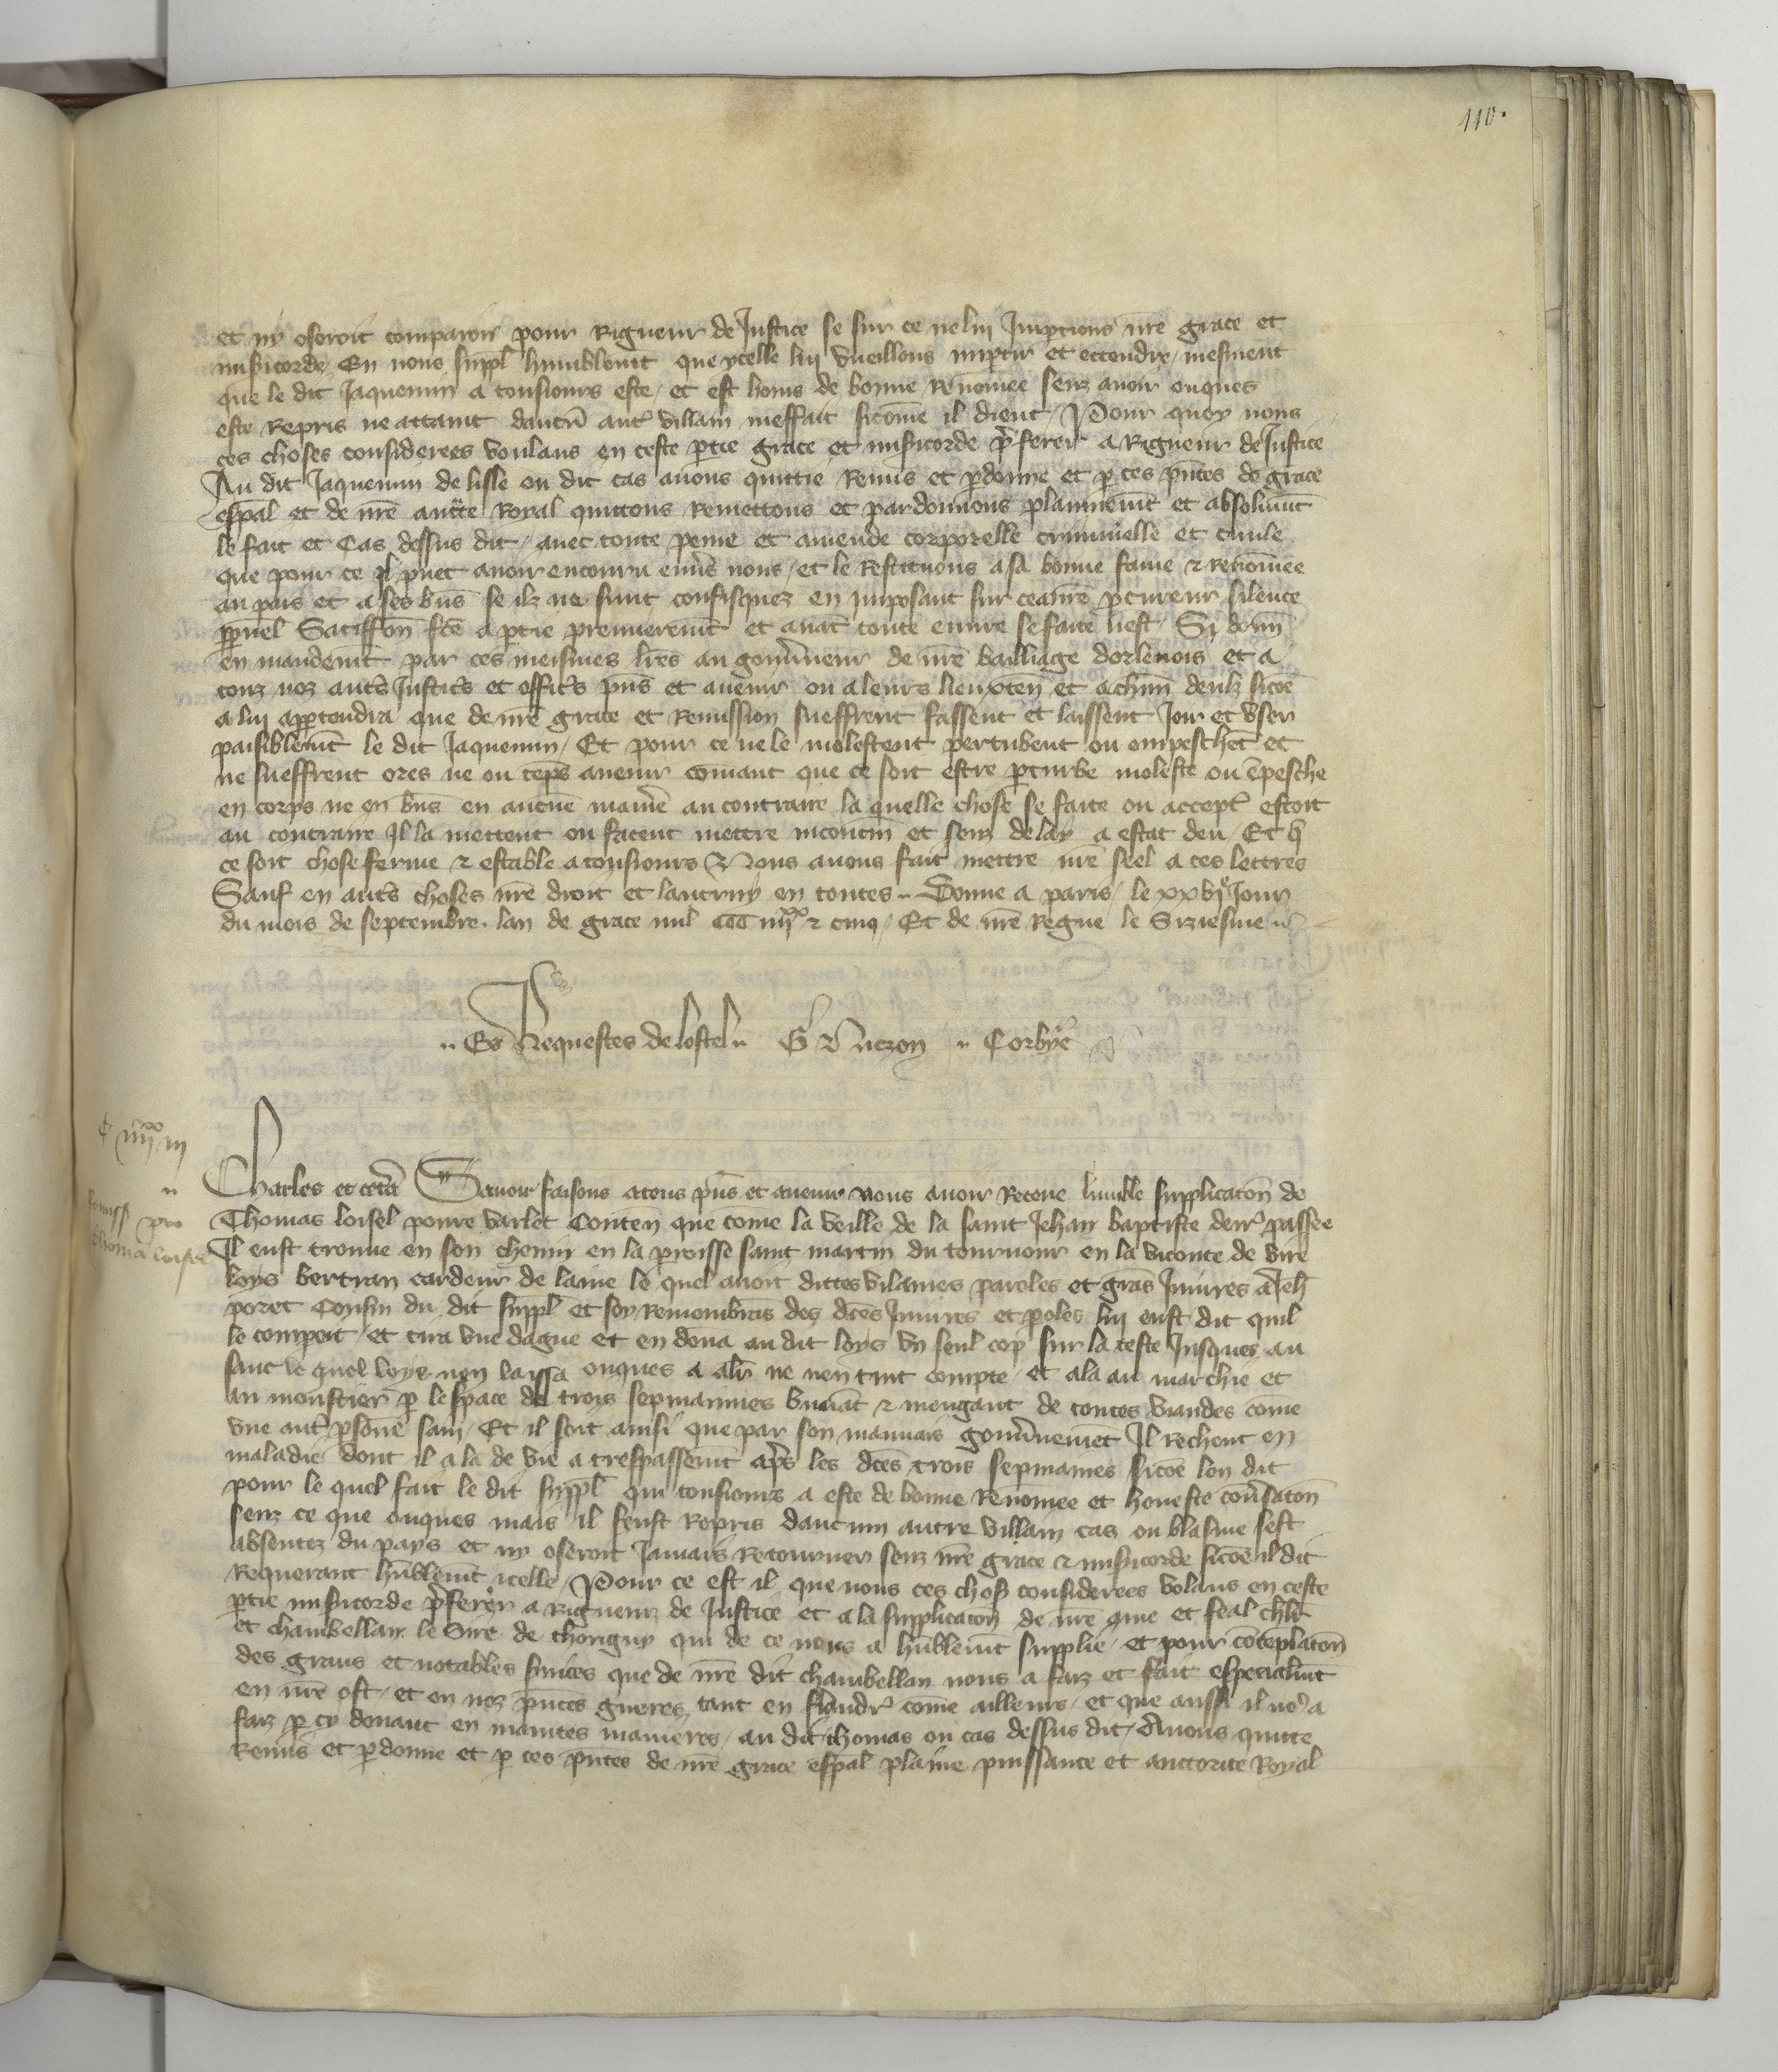 110.
et ny oseroit comparoir pour Rigueur de Justice se sur ce ne lui Imptions nre grace et
misicorde En nous suppl humblemt que ycelle lui vueillons imptir et ettendre, mesment
que le dit Jaquemin a tousiours este, et est homs de bonne Renomee senz avoir onques
este Repris ne attaint daucun aut villain meffait sicome il dient, Pour quoy nous
ces choses considerees voulans en ceste ptie grace et misicorde pferer a Rigueur de Justice
Au dit Jaquemin de lisle ou dit cas avons quittie Remis et pdonne et p ces pntes de grace
espal et de nre aucte Royal quittons Remettons et pardonnons plainnemt et absolumt
le fait et Cas dessus dit, avec toute peine et amende corporelle criminelle et civile
que pour ce il puet avoir encouru envs nous, et le Restituons a sa bonne fame & renomee
au pais et a ses bns se ilz ne sunt confisquez en Imposant sur ce a nre pcureur silence
ppuel Satiffon fce a ptie premieremt et avat toute euvre se faite nest, Si donn
en mandemt par ces meismes lres au gouvneur de nre bailliage dorlenois et a
touz noz auts Justics et offics pns et avenir ou a leurs lieuxten et a chun deulz sicoe
a lui apptendra que de nre grace et Remission sueffrent fassent et laissent Joir et user
paisiblemt le dit Jaquemin, Et pour ce ne le molestent pertubent ou empeschet et
ne sueffrent ores ne ou teps avenir comant que ce soit estre pturbe moleste ou epesche
en corps ne en bns en aucune manie au contraire la quelle chose se faite ou accept estoit
au contraire Il la mettent ou facent mettre incontin et senz delay a estat deu, Et q
ce soit chose ferme & estable a tousiours Nous avons fait mettre nre seel a ces lettres
Sauf en auts choses nre droit et lautruy en toutes Donne a paris, le xxvije Jour
du mois de septembre, lan de grace mil CCC iiijxx & cinq, Et de nre Regne le Siziesme
Es Requestes de lostel G Nuczon Corbye
C iiijxx iij
Remiss pro
thoma loisel
Charles et cetra Savoir faisons a tous pns et avenir nous avoir Receue lumble supplicaton de
Thomas loisel povre varlet Conten que come la veille de la saint Jehan baptiste denr passee
Il eust trouve en son chemin en la proisse saint martin du tournour en la viconte de vire
loys bertran cardeur de laine le quel avoit dittes vilaines paroles et gras Iniures a Jeh
poret Cousin du dit suppl et soy Remembras des dces Iniures et poles lui eust dit quil
le compoit, et tira une dague et en dona au dit loys un seul cop sur la teste Jusques au
sanc le quel loys non laissa onques a aler ne nen tint compte, et ala au marchie et
au moustier p lespace de trois sepmainnes buvat & mengant de toutes viandes come
une aut psone sain, Et il soit ainsi que par son mauvais gouvnemet Il Rechent en
maladie dont il ala de vie a trespassemt aps les dces trois sepmaines sicoe lon dit
pour le quel fait le dit suppl qui tousiours a este de bonne Renomee et honeste convsaton
senz ce que onques mais il feust Repris daucun autre villain cas ou blasme sest
absentez du pays et ny oseroit Jamais Retourner senz nre grace & misicorde sicoe il dit
Requerant hublemt icelle, Pour ce est il que nous ces chos considerees volans en ceste
ptie misicorde pferer a Rigueur de Justice et a la supplicaton de nre ame et feal chlr
et chambellan le Sire de thorigny qui de ce nous a hublemt supplie, et pour coteplaton
des grans et notables suices que de nre dit chambellan nous a faiz et fait especialmt
en nre ost, et en noz pntes gueres tant en flandr come ailleurs, et que aussi il nos a
faiz p cy devant en maintes manieres, au dit thomas ou cas dessus dit, Avons quitte
Remis et pdonne et p ces pntes de nre grace espal plaine puissance et auctorite Royal